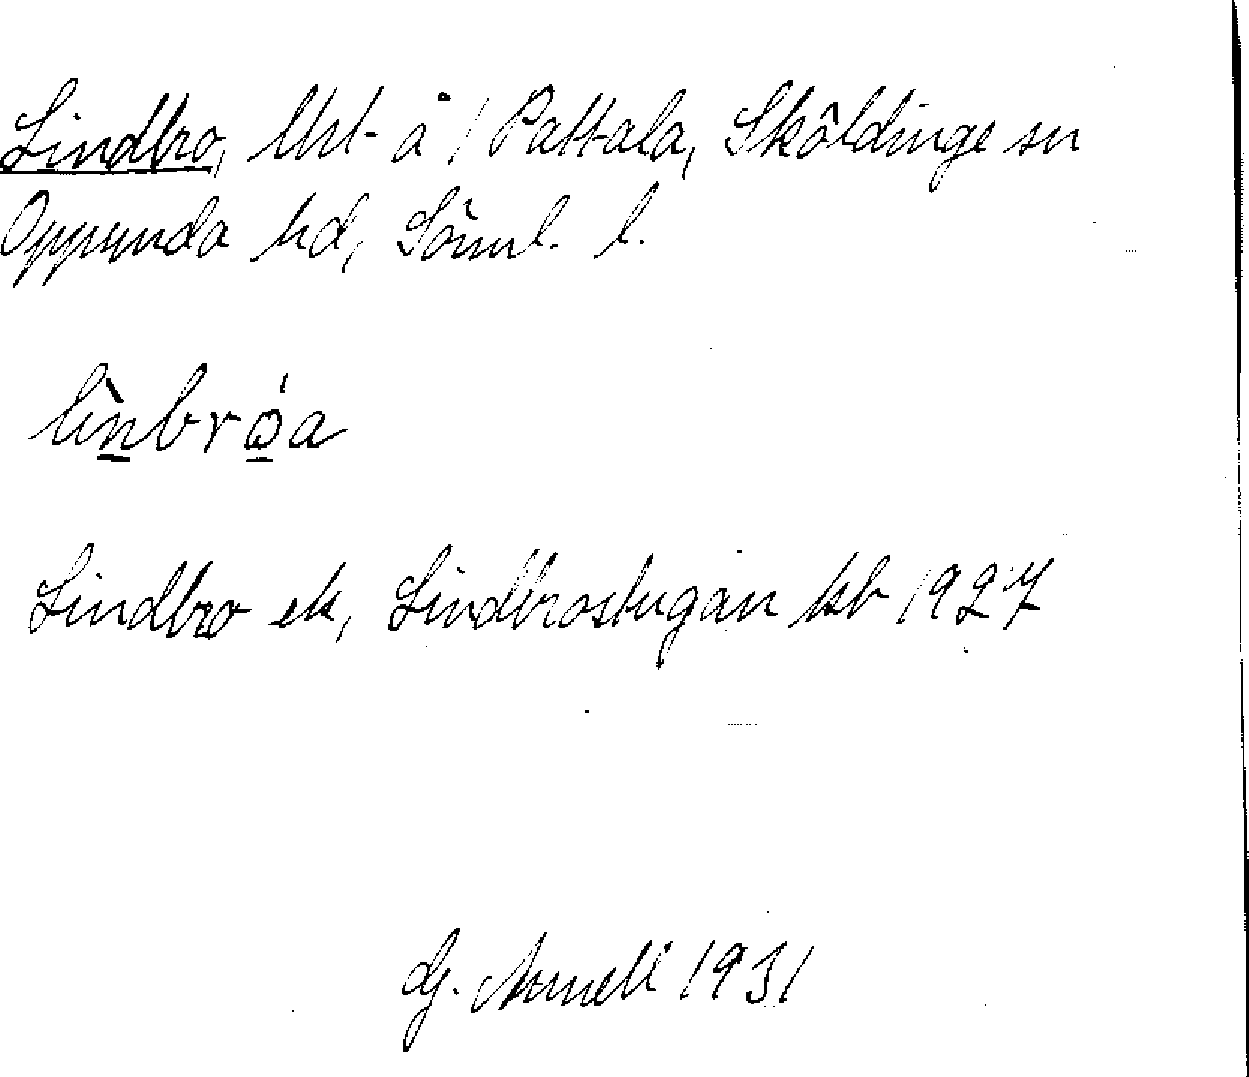 Lindbro, lht å / Pattala, Sköldinge sn
Oppunda hd, Söml. l.
lìnbrǫ́a
Lindbro ek, Lindbrostugan kb 1927
G. Arnell 1931